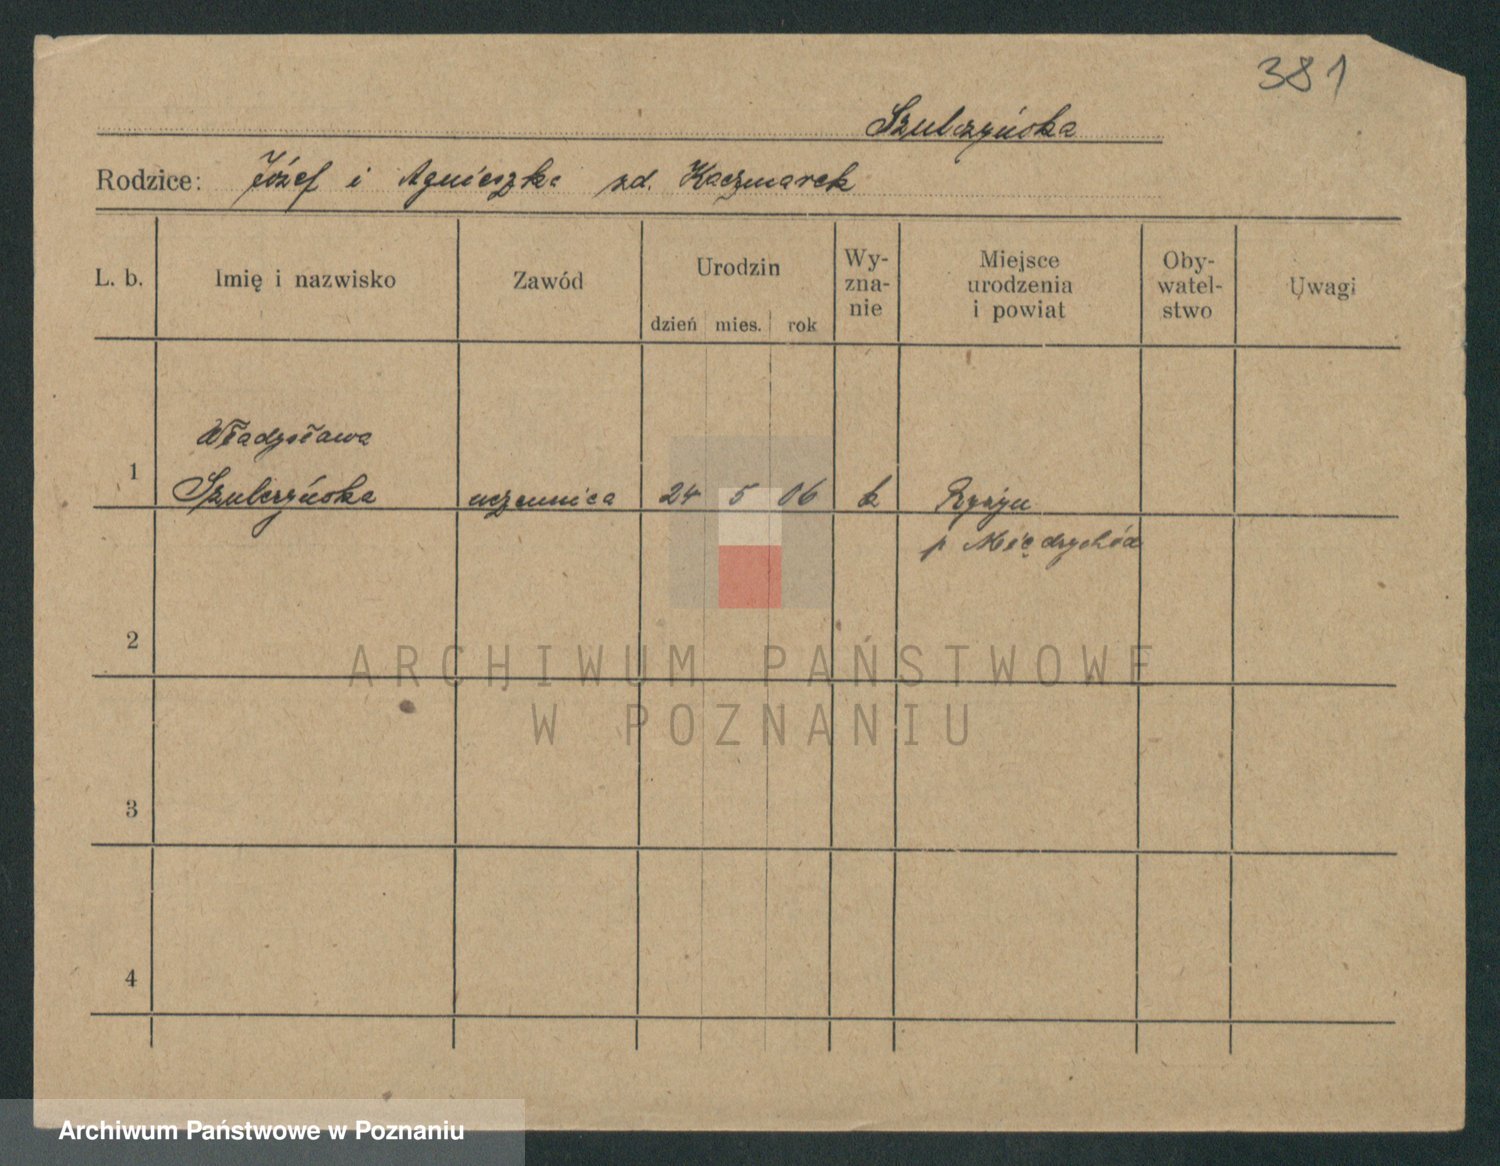 381
Szulczyńska
Rodzice: Józef i Agnieszka zd. Kaczmarek
L. b.
Imię i nazwisko
Zawód
Urodzin
dzień mies. rok
Wy-
zna-
nie
Miejsce
urodzenia
i powiat
Oby-
watel-
stwo
Uwagi
Władysława
1 Szulczyńska uczennica 24 5 06 k
p Międzychód
2
3
4
ARCHIWUM PAŃSTWOWE
W POZNANIU
Archiwum Państwowe w Poznaniu